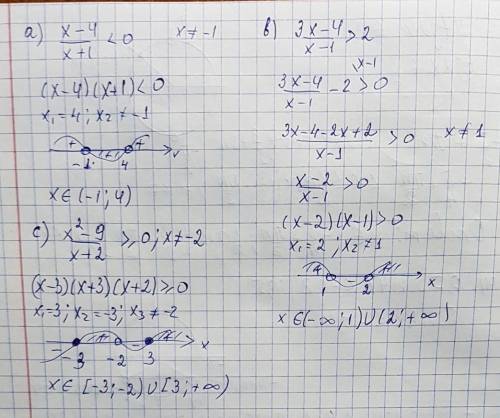 a) (x-4)/(x+1) < 0    x ≠ -1
(x-4)(x+1) < 0
x₁ = 4 ; x₂ ≠ -1
+ - +
-1 4 x
x ∈ (-1 ; 4)
c) (x²-9)/(x+2) ≥ 0 ; x ≠ -2
(x-3)(x+3)(x+2) ≥ 0
x₁ = 3 ; x₂ = -3 ; x₃ ≠ -2
- + - +
-3 -2 3 x
x ∈ [-3 ; -2) ∪ [3 ; +∞)
b) (3x-4)/(x-1) > 2
\x-1
(3x-4)/(x-1) - 2 > 0
(3x-4-2x+2)/(x-1) > 0    x ≠ 1
(x-2)/(x-1) > 0
(x-2)(x-1) > 0
x₁ = 2 ; x₂ ≠ 1
+ - +
1 2 x
x ∈ (-∞ ; 1) ∪ (2 ; +∞)